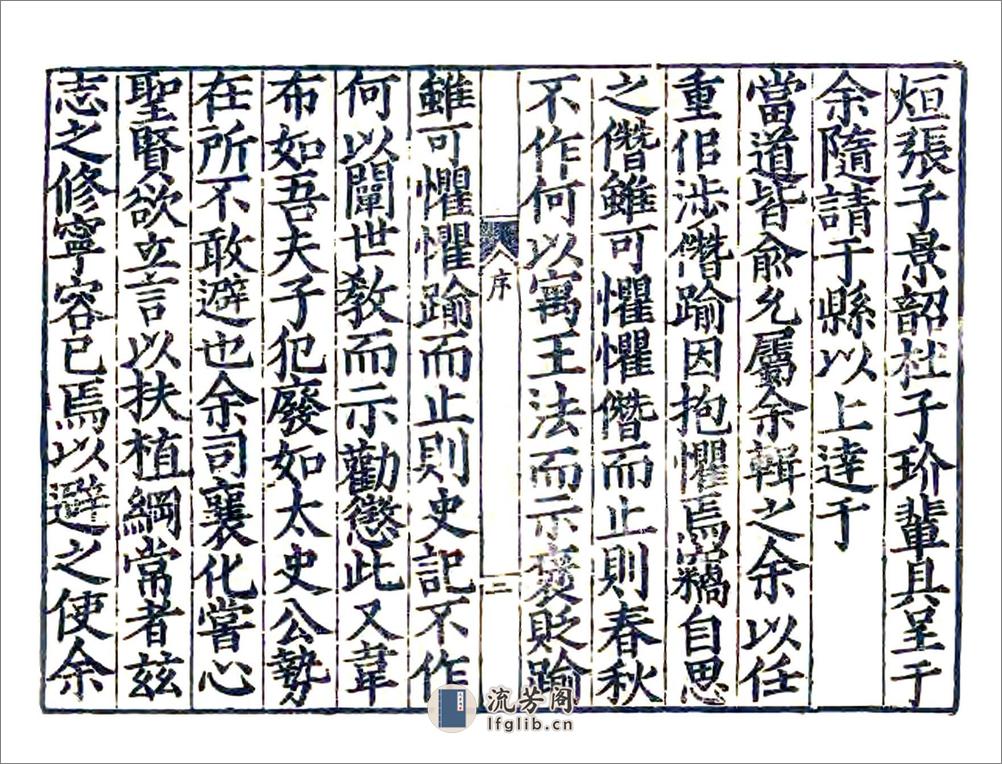 烜張子景韶杜子玠輩具呈于
余隨請于縣以上達于
當道皆俞允屬余輯之余以任
重但涉僭踰因抱懼焉竊自思
之僭雖可懼懼僭而止則春秋
不作何以寓王法而示褒貶踰
序
三
雖可懼懼踰而止則史記不作
何以闡世教而示勸懲此又韋
布如吾夫子犯廢如太史公勢
在所不敢避也余司襄化嘗心
聖賢欲立言以扶植綱常者玆
志之修寧容已焉以避之使余
流芳阁
lfglib.cn